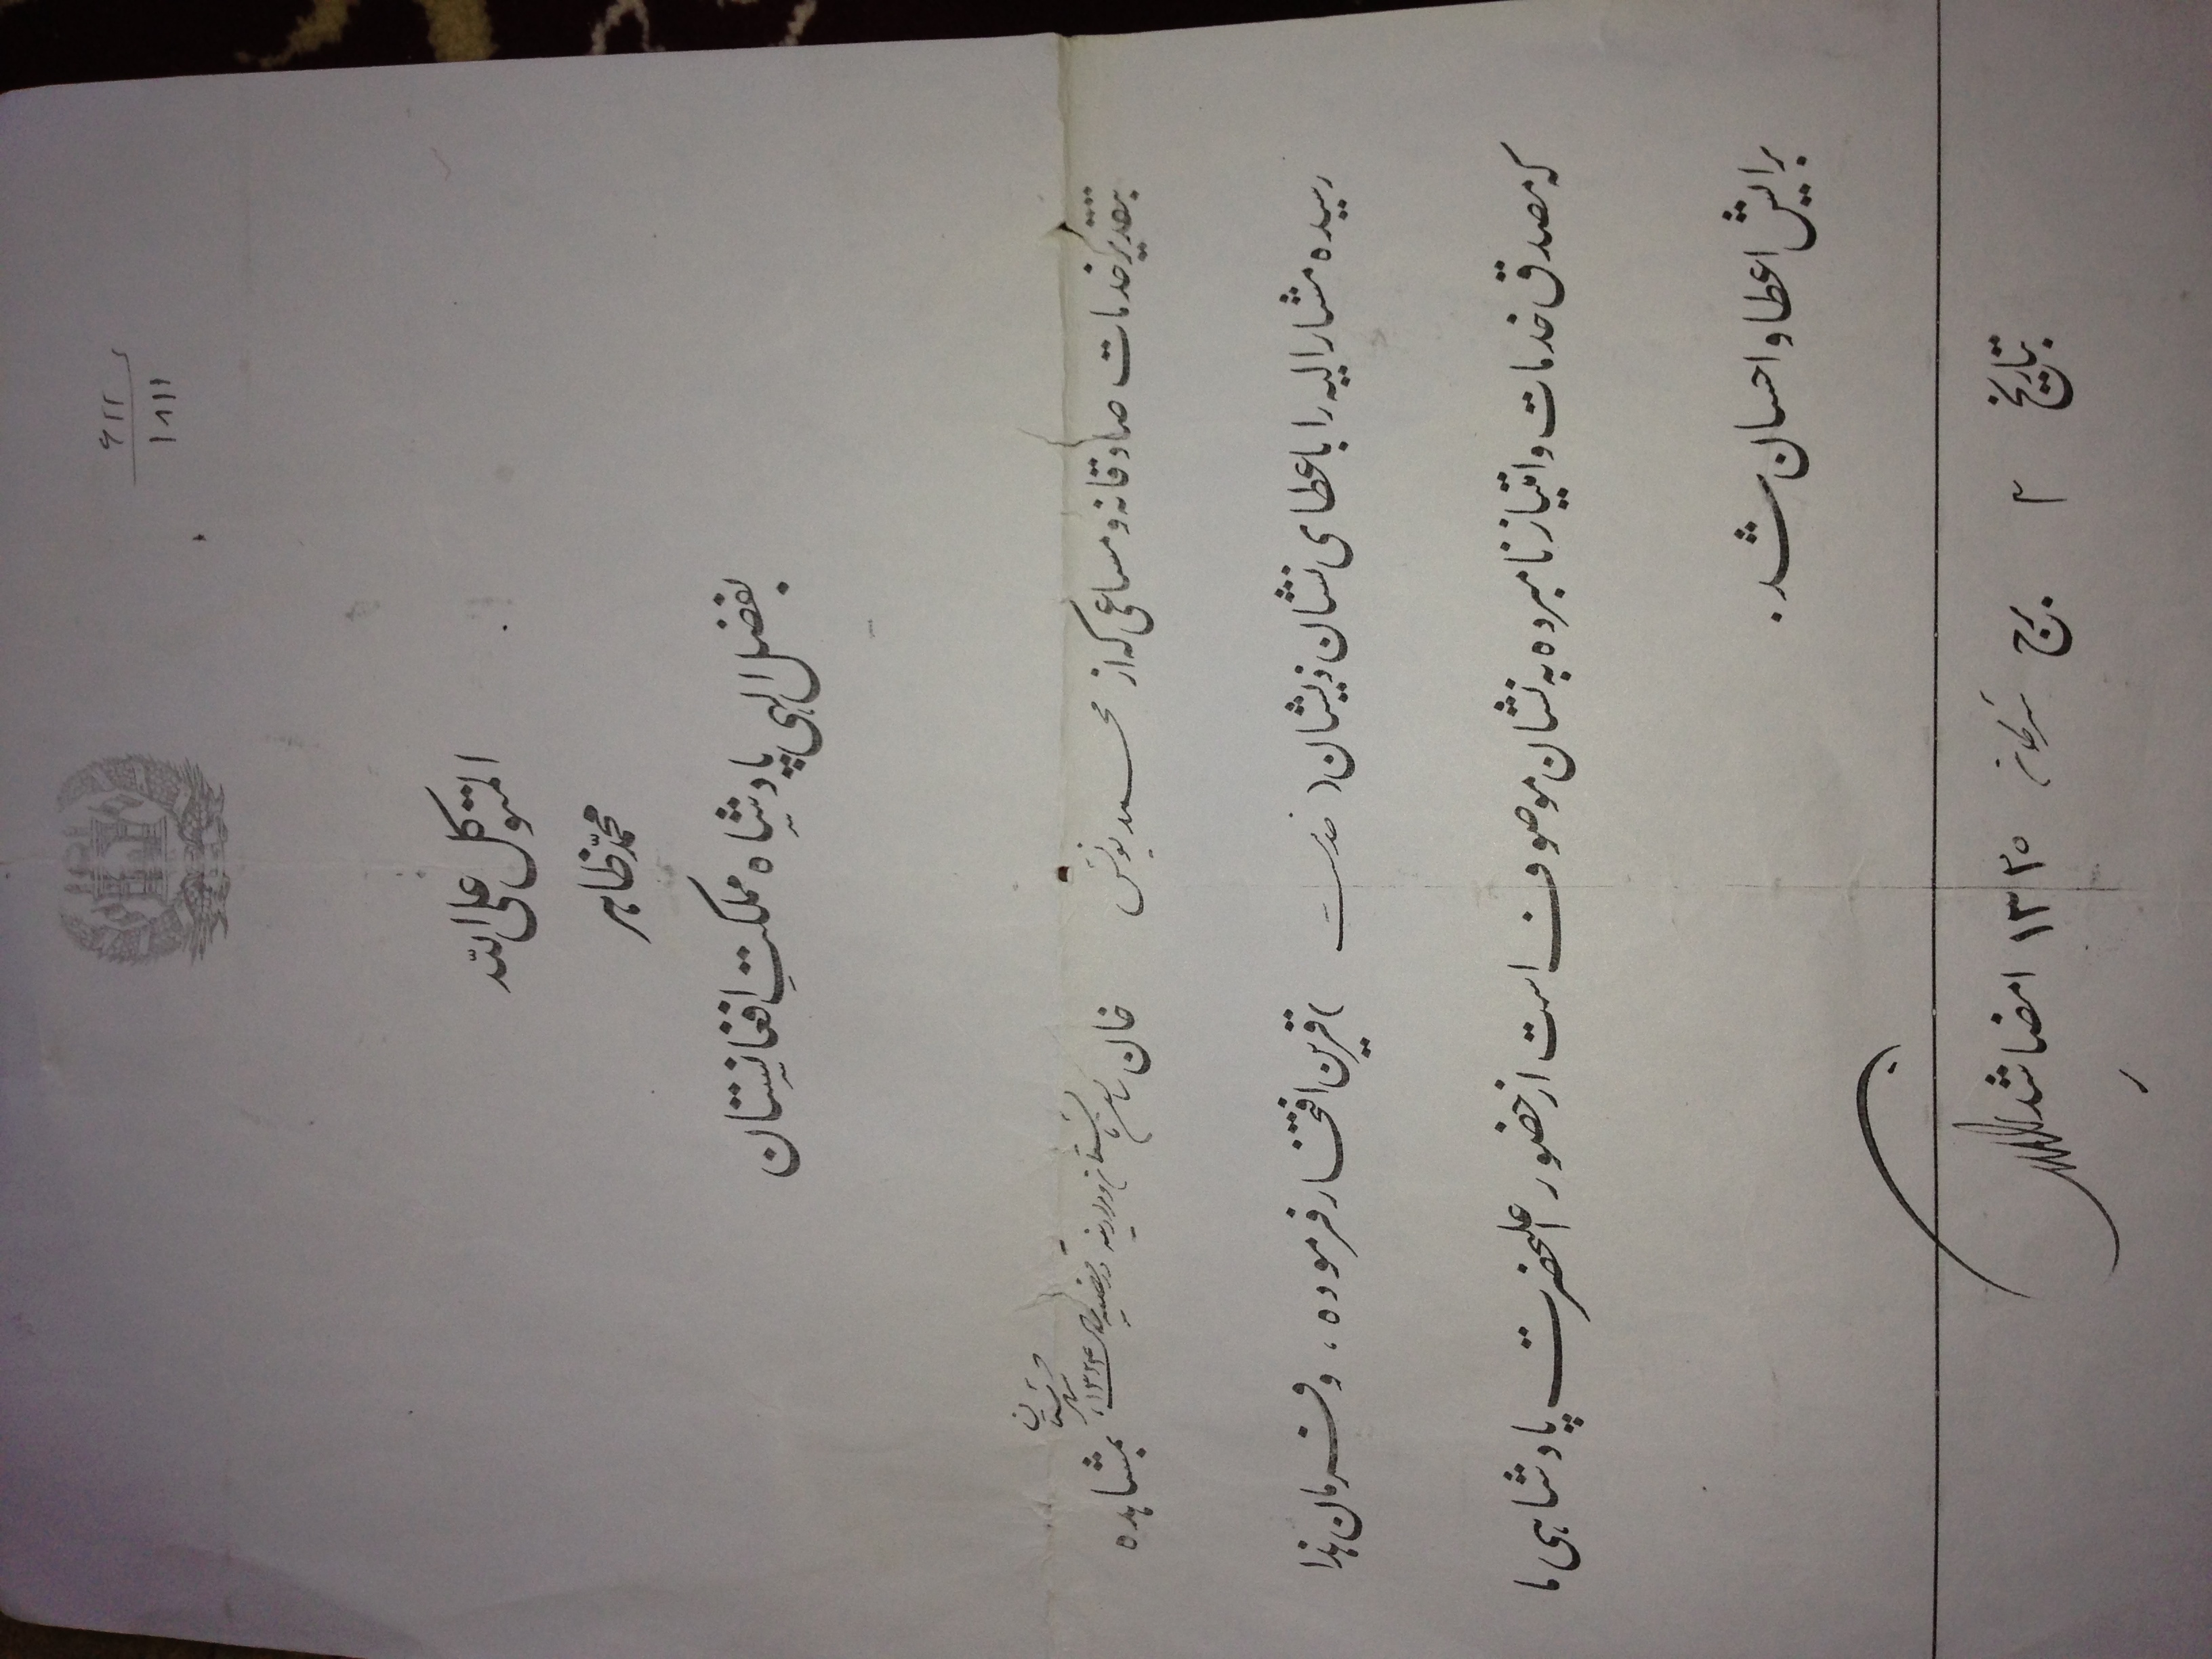 ۶۲۲
۱۸۱۱
المتوکل علی الله
محمد ظاهر
بفضل الهی پادشاه مملکت افغانستان
بتقدیر خدمات صادقانه و مساعی که از محمد یونس خان ۱۳۲۴ بمشاهده
رسیده مشارالیه را با عطای نشان ذیشان ( خدمت ) قرین افتخار فرموده ، و فرمان هذا
که مصدق خدمات و امتیاز نامبرده به نشان موصوف است از حضور اعلیحضرت پادشاهی ما
برایش اعطا و احسان شد .
بتاریخ ۲ برج سرطان ۱۳۲۵ امضا شد